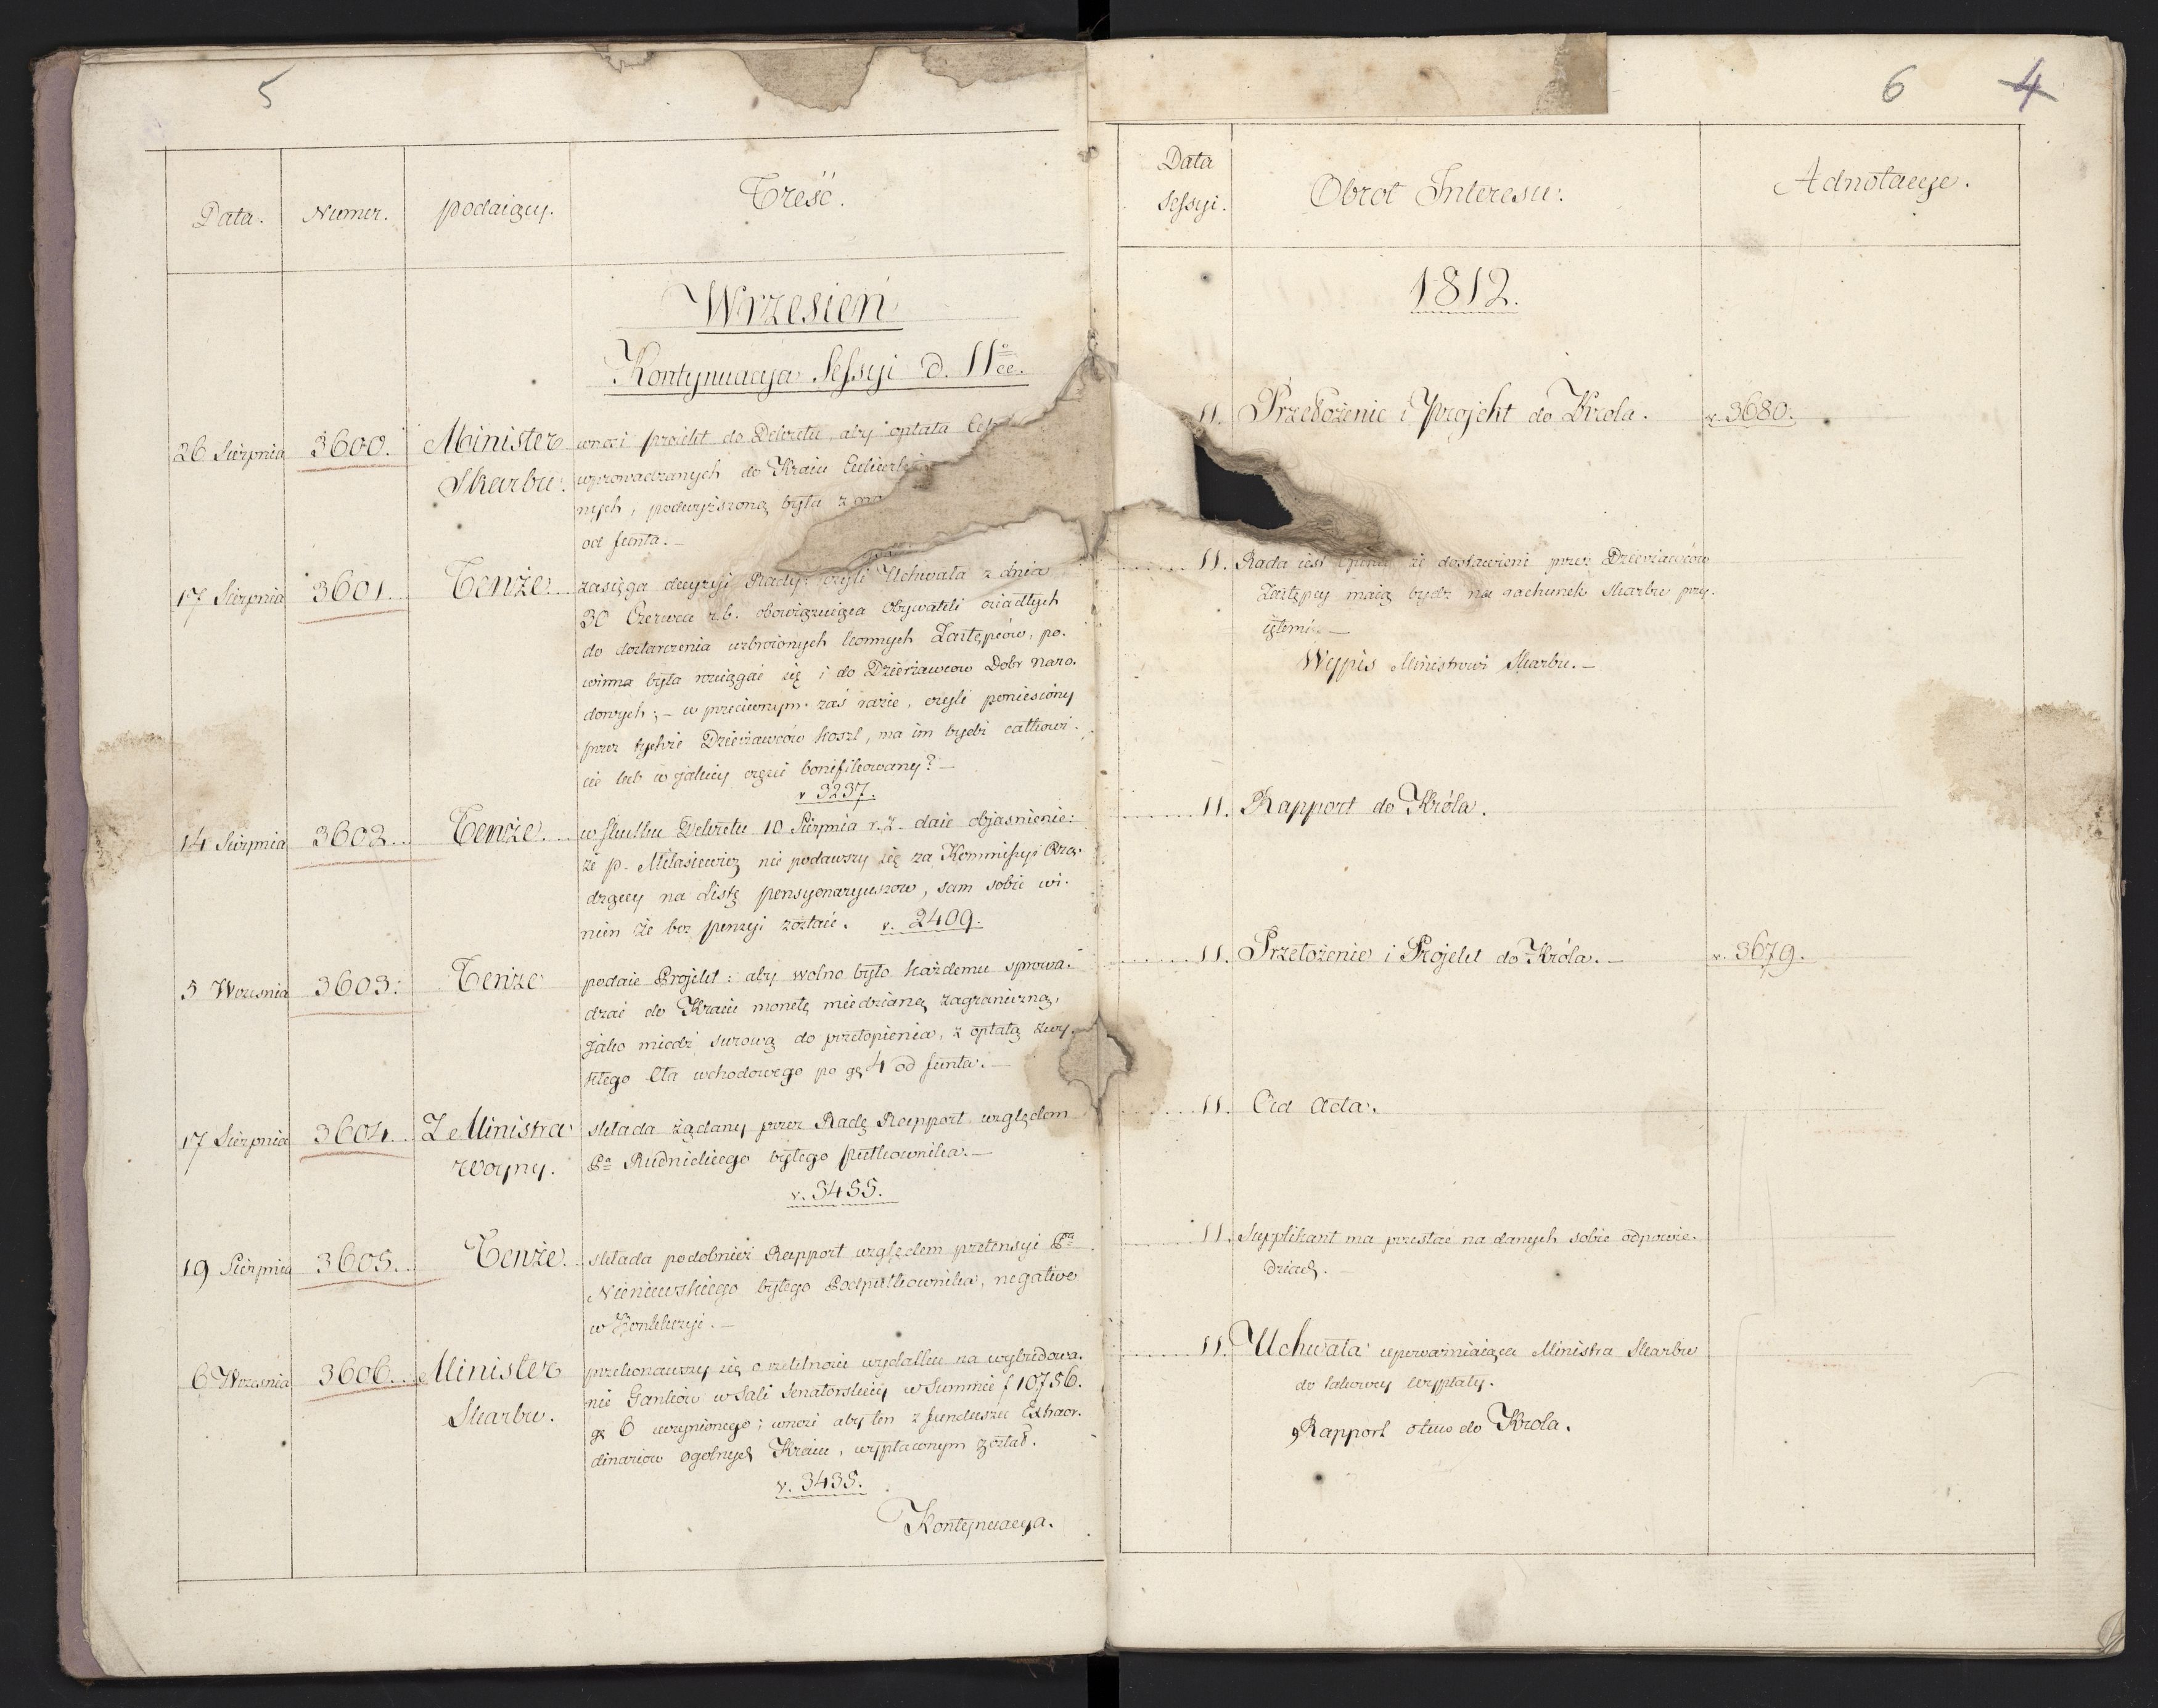 5
Data.
Numer.
podaiący.
Treść.
Wrzesień
Kontynuacya Sessyi d. 11º ce.
26 Sierpnia 3600. Minister Skarbu.
wnosi projekt do Dekretu, aby opłata
wprowadzanych do Kraiu
nych, podwyższoną była z
od funta.—
17 Sierpnia 3601. Tenże.
zasięga decyzyi Rady: czyli Uchwała z dnia
30 Czerwca r.b. obowięzuiąca Obywateli osiadłych
do dostarczenia uzbroionych konnych Zastępców, po-
winna była rozciągać się i do Dzierżawcow Dobr naro-
dowych; — w przeciwnym zaś razie, czyli poniesiony
przez tychże Dzierżawców koszt, ma im bydź całkowi-
cie lub w jakiey części bonifikowany? —
v 3237.
14 Sierpnia 3602. Tenże.
w skutku Dekretu 10 Sierpnia r. z. daie objasnienie:
że p. Milasiewicz nie podawszy się za Kommissyi Rzą-
dzącey na Listę pensyonaryuszow, sam sobie wi-
nien że bez pensyi zostaie. v. 2409.
5 Wrzesnia 3603. Tenże
podaie Projekt: aby wolno było każdemu sprowa-
dzać do Kraiu monetę miedzianą zagraniczną,
jako miedź surową do przetopienia, z opłatą zwy-
kłego Cła wchodowego po gę 4 od funta.—
17 Sierpnia 3604. Z. Ministra woyny.
składa żądany przez Radę Rapport względem
Pª Rudnickiego byłego pułkownika.—
v. 3455.
19 Sierpnia 3605. Tenże.
składa podobnież Rapport względem pretensyi Pª
Nieniewskiego byłego Podpułkownika, negative
w Konkluzyi.—
6 Wrzesnia 3606. Minister Skarbu.
przekonawszy się o rzetelności wydatku na wybudowa-
nie Ganków w Sali Senatorskiey w Summie f 10756.
gę 6 uczynionego; wnosi aby ten z funduszu Extraor-
dinariow ogolnych Kraiu, wypłaconym został.
v. 3435.
Kontynuacya.
6 4
Data Sessyi.
Obrot Interesu.
Adnotacye.
1812.
11. Przełożenie i Projekt do Krola. v. 3680.
11. Rada iest opinii że dostawieni przez Dzierżawców
Zastępcy maią bydź na rachunek Skarbu przy-
ięтemi.—
Wypis Ministrowi Skarbu.—
11. Rapport do Króla.
11. Przełożenie i Projekt do Króla.— v. 3679.
11. Ad Acta.
11. Supplikant ma przestać na danych sobie odpowie-
dziach.
11. Uchwała upoważniaiąca Ministra Skarbu
do takowey wypłaty.
Rapport otem do Krola.